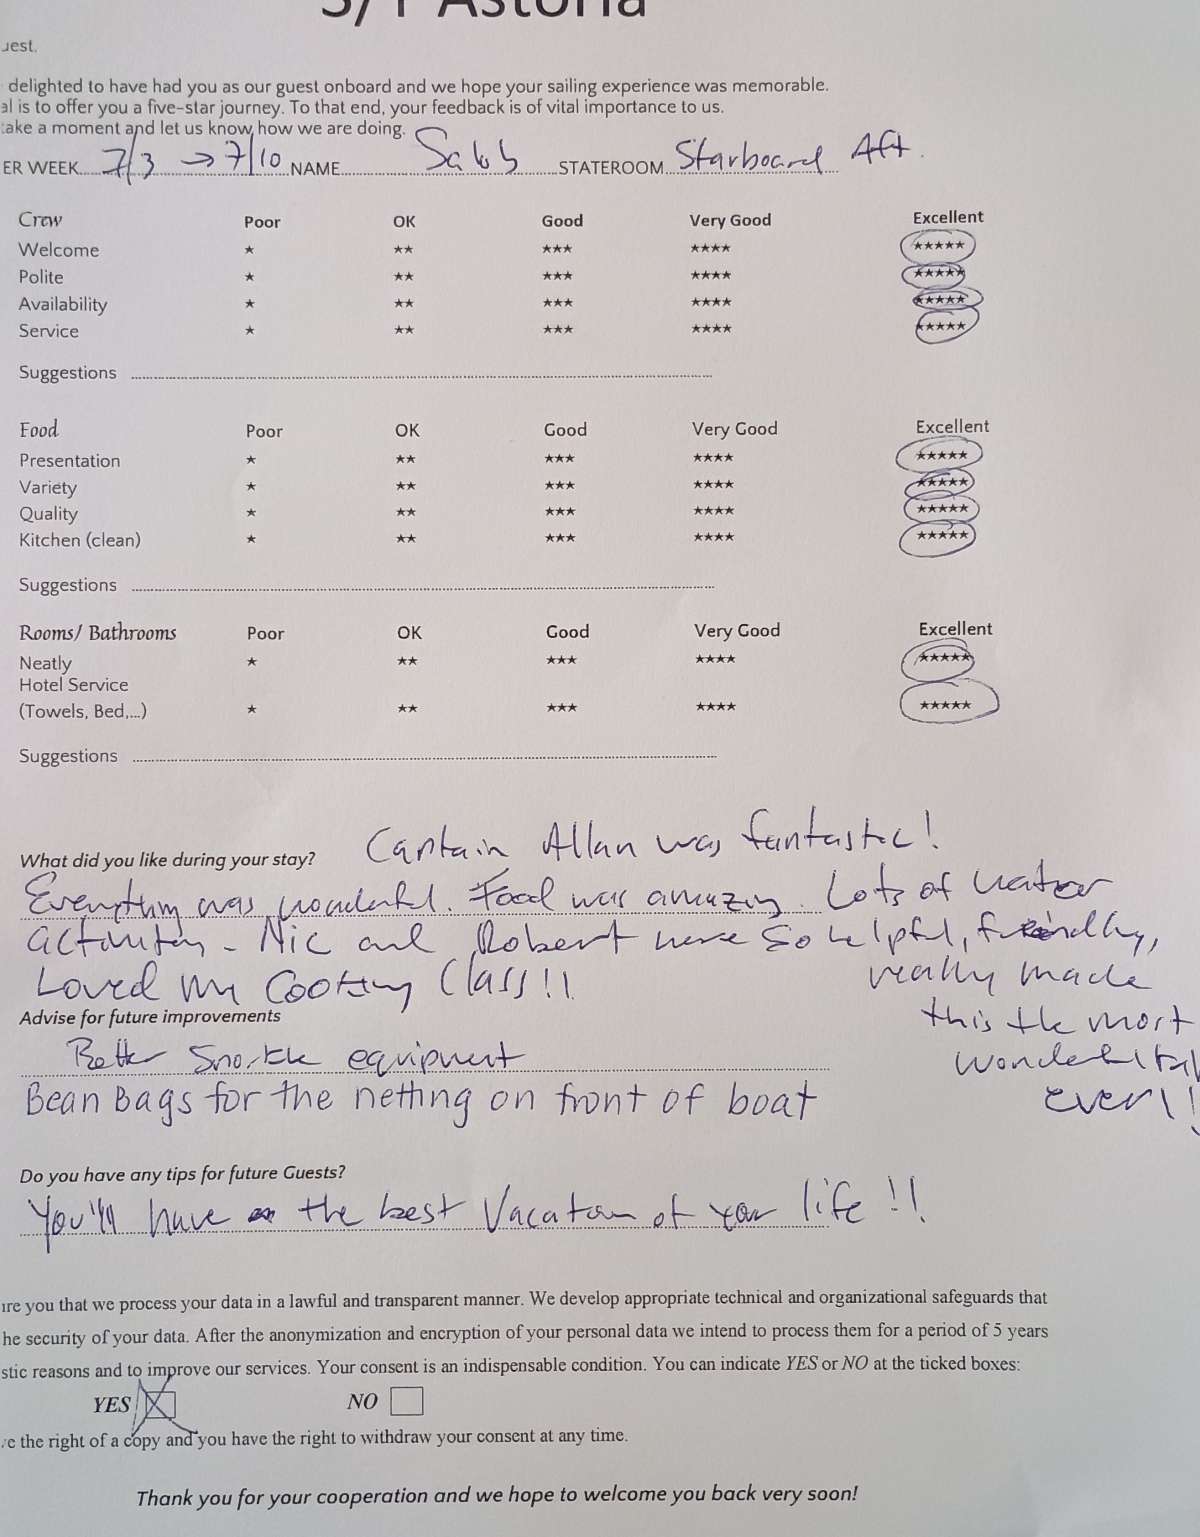 S/Y Astoria
uest,
delighted to have had you as our guest onboard and we hope your sailing experience was memorable.
al is to offer you a five-star journey. To that end, your feedback is of vital importance to us.
take a moment and let us know how we are doing.
ER WEEK 7/3 → 7/10 NAME STATEROOM Starboard Aft
Crew Poor OK Good Very Good Excellent
Welcome ★ ★★ ★★★ ★★★★ ★★★★★
Polite ★ ★★ ★★★ ★★★★ ★★★★★
Availability ★ ★★ ★★★ ★★★★ ★★★★★
Service ★ ★★ ★★★ ★★★★ ★★★★★
Suggestions
Food Poor OK Good Very Good Excellent
Presentation ★ ★★ ★★★ ★★★★ ★★★★★
Variety ★ ★★ ★★★ ★★★★ ★★★★★
Quality ★ ★★ ★★★ ★★★★ ★★★★★
Kitchen (clean) ★ ★★ ★★★ ★★★★ ★★★★★
Suggestions
Rooms/ Bathrooms Poor OK Good Very Good Excellent
Neatly ★ ★★ ★★★ ★★★★ ★★★★★
Hotel Service
(Towels, Bed,...) ★ ★★ ★★★ ★★★★ ★★★★★
Suggestions
What did you like during your stay? Captain Allan was fantastic!
Everything was wonderful. Food was amazing. Lots of water
activities - Nic and Robert were so helpful, friendly,
Loved my Cooking Class!! really made
this the most
Advise for future improvements
Better Snorkle equipment
wonderful
Bean Bags for the netting on front of boat
ever!!
Do you have any tips for future Guests?
You'll have the best Vacation of your life!!
ure you that we process your data in a lawful and transparent manner. We develop appropriate technical and organizational safeguards that
he security of your data. After the anonymization and encryption of your personal data we intend to process them for a period of 5 years
stic reasons and to improve our services. Your consent is an indispensable condition. You can indicate YES or NO at the ticked boxes:
YES NO
ve the right of a copy and you have the right to withdraw your consent at any time.
Thank you for your cooperation and we hope to welcome you back very soon!